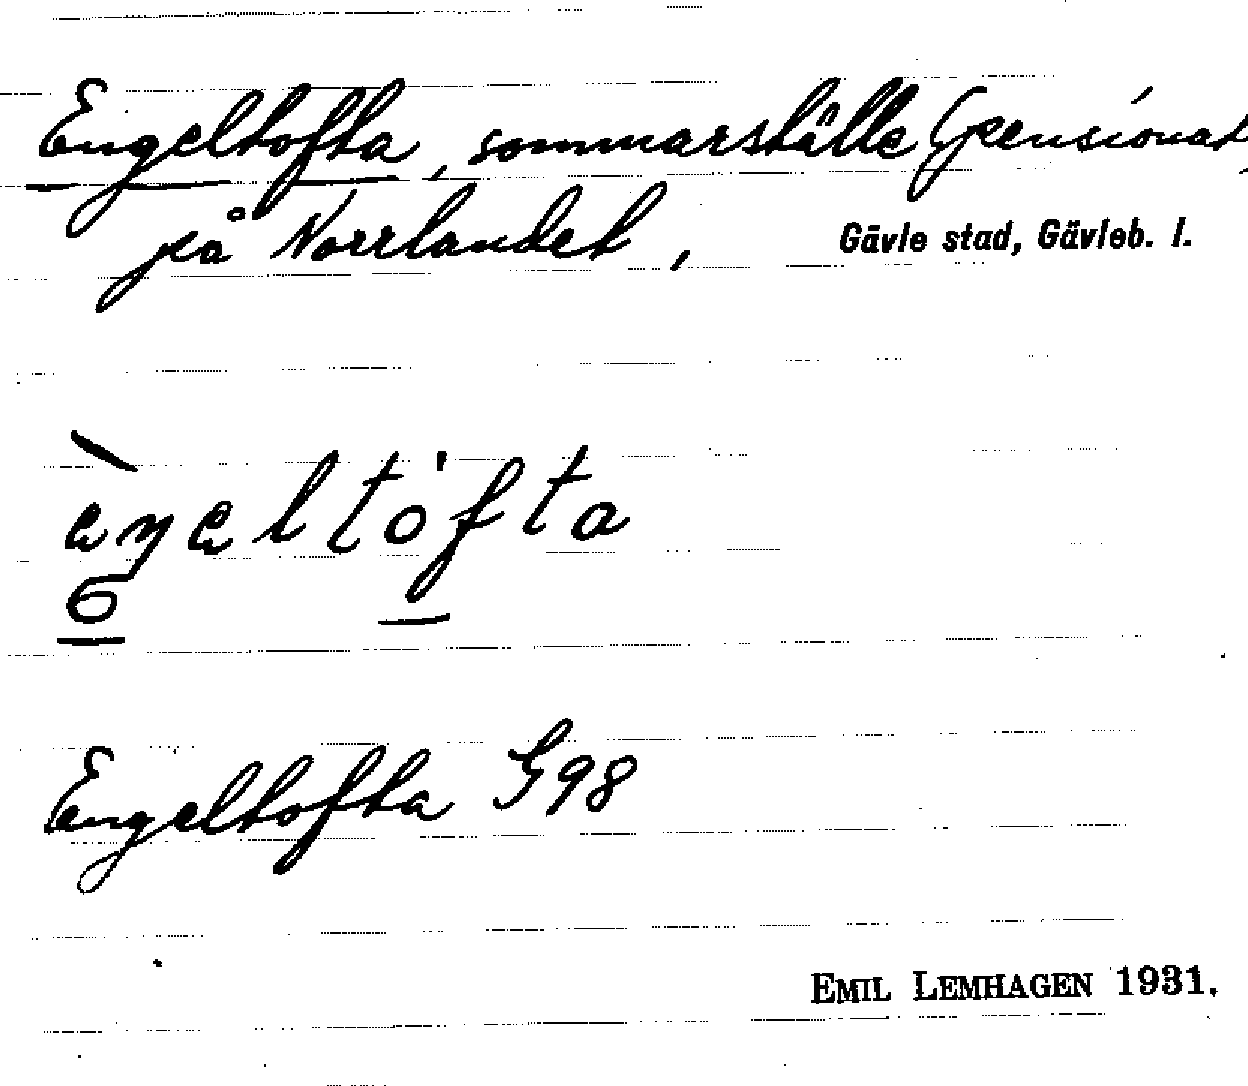 Engeltofta, sommarställe (pensionat,
på Norrlandet, Gävle stad, Gävleb. l.
eŋeltofta
6
Engeltofta G98
EMIL LEMHAGEN 1931.